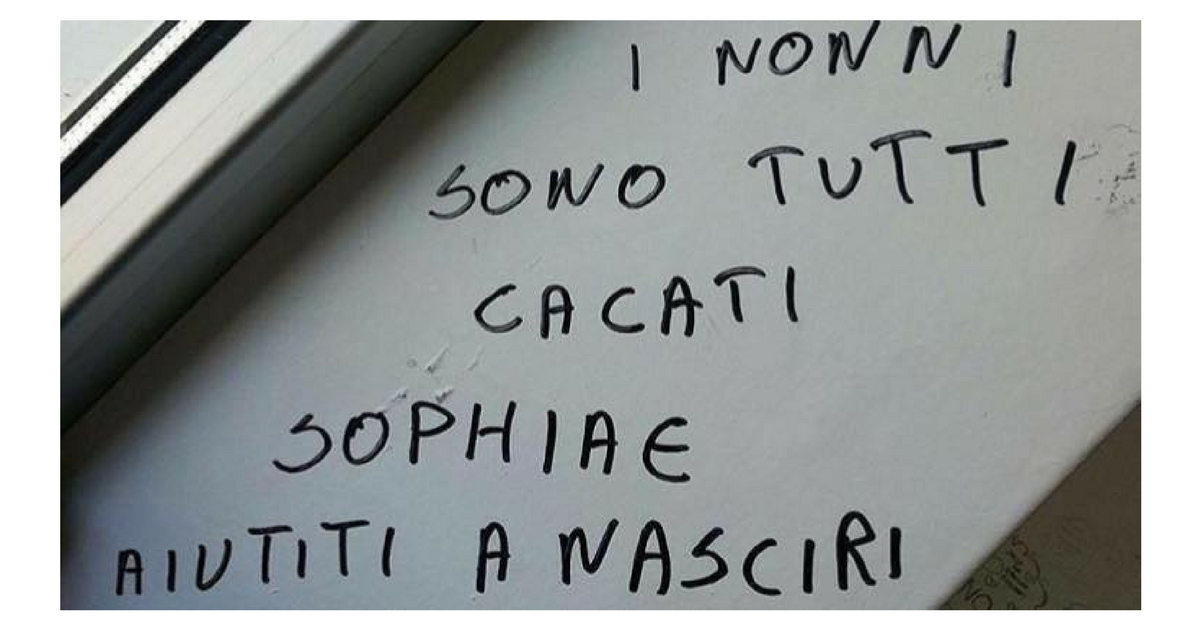 I NONNI
SONO TUTTI
CACATI
SOPHIAE
AIUTITI A NASCIRI